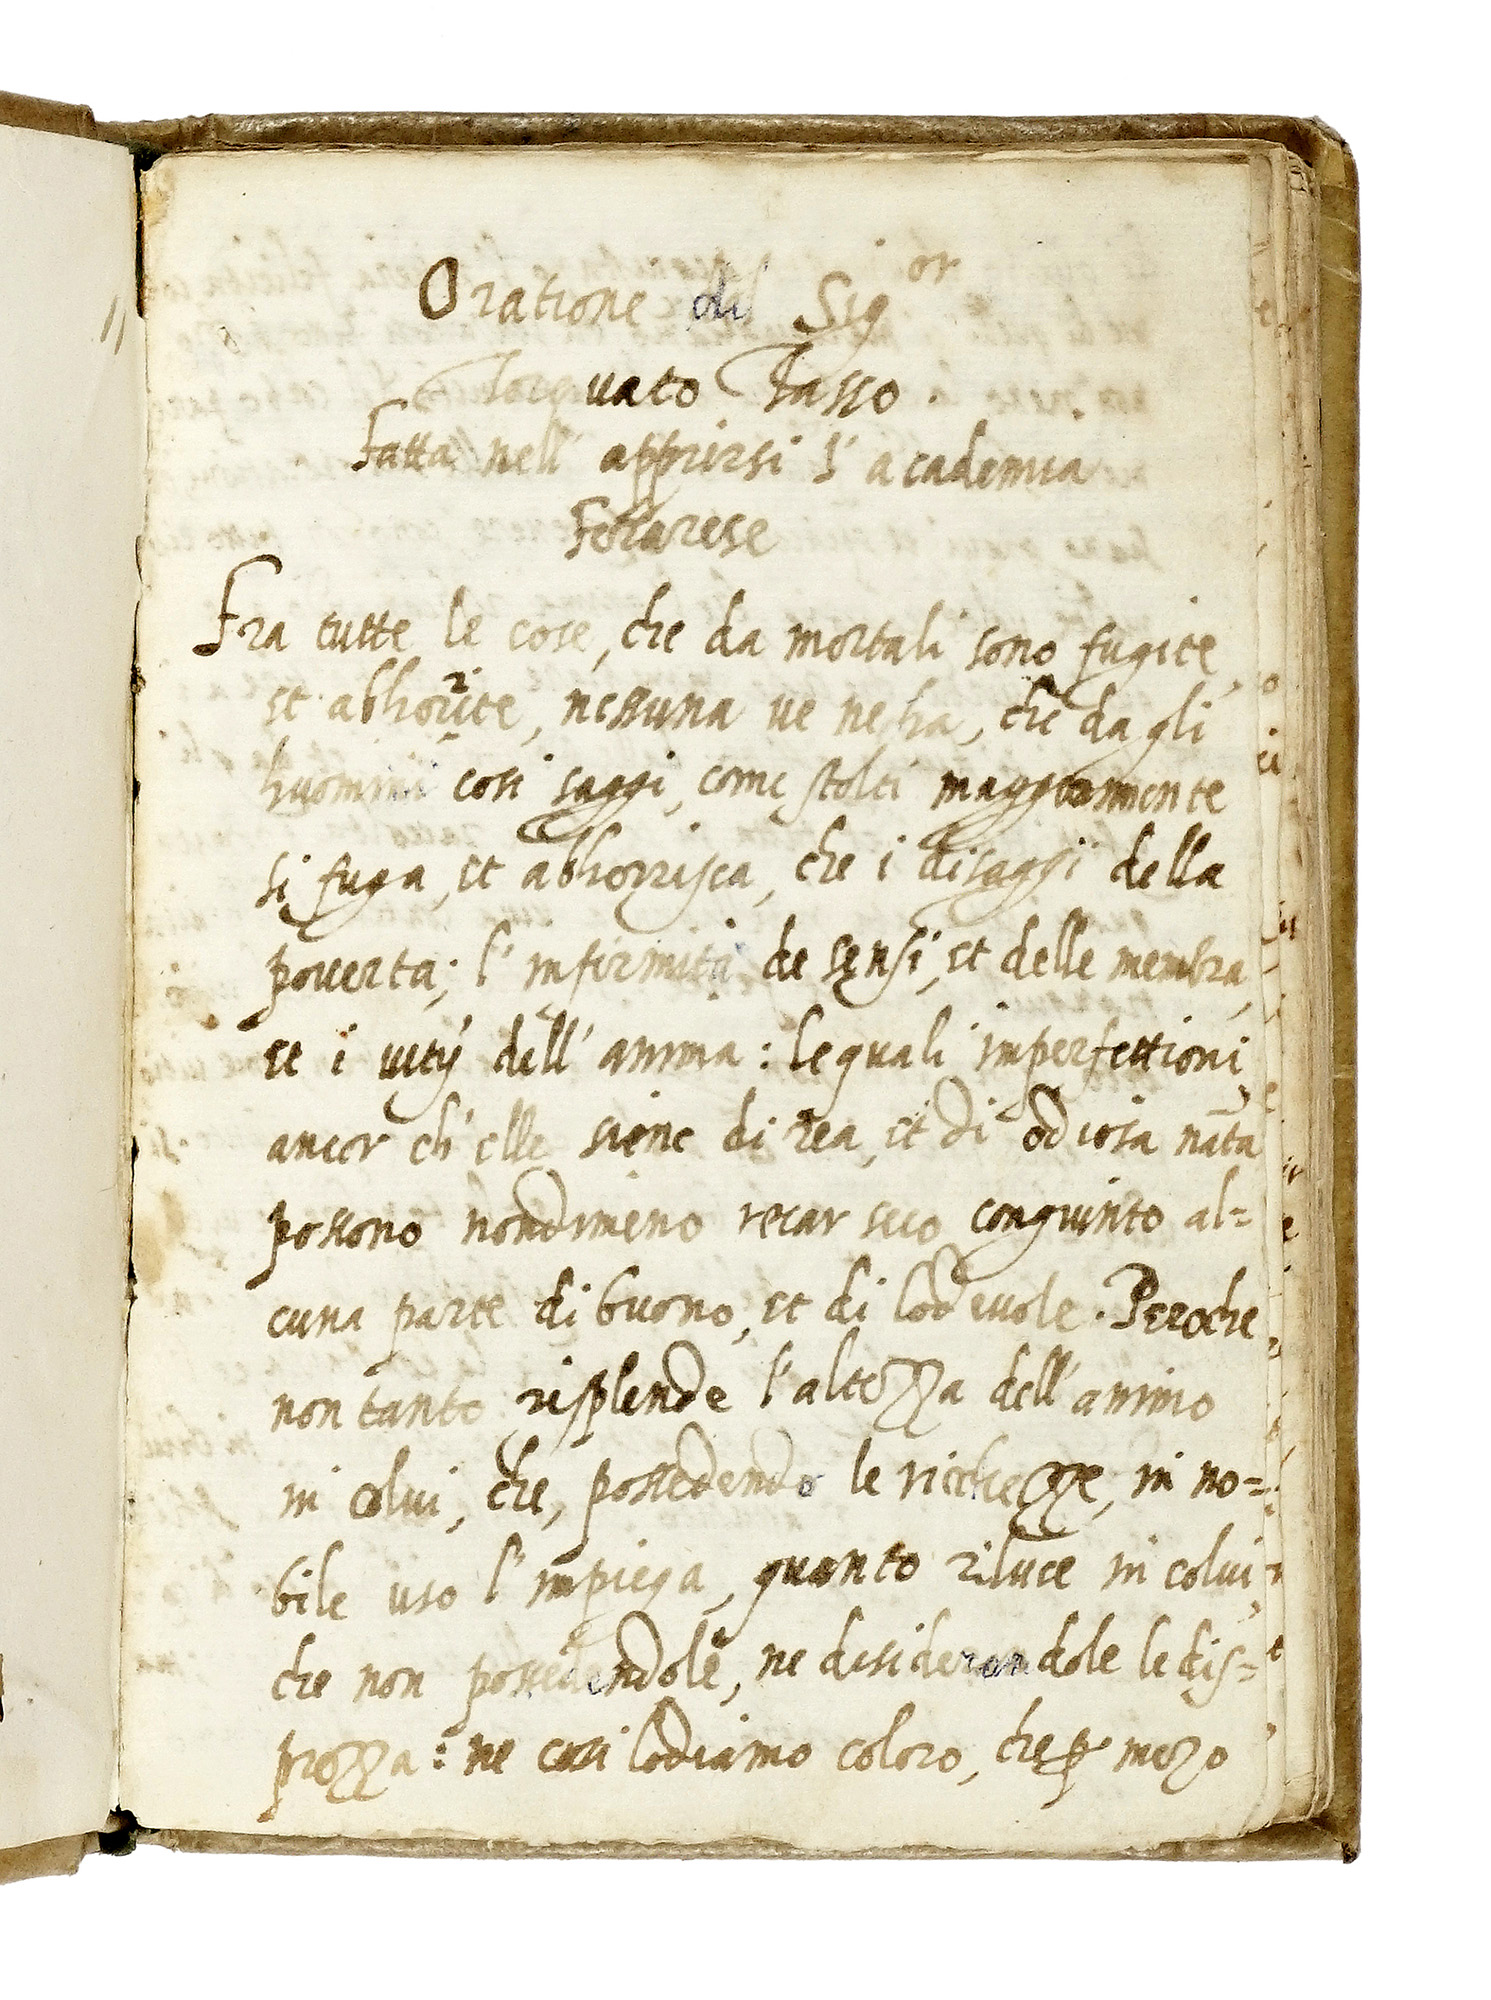 Oratione del Sig.or
Torquato Tasso.
Fatta nell' apprirsi l' academia
Ferrarese
Fra tutte le cose, che da mortali sono fugite,
et abhorrite, nessuna ve ne ha, che da gli
huomini cosi saggi, come stolti maggiormente
si fuga, et abhorrisca, che i disaggi della
pouerta; l' infirmità de sensi, et delle membra,
et i uitij dell' anima: le quali imperfettioni,
ancor ch' elle siene di rea, et di odiosa nãta
possono nondimeno recar seco congiunto al=
cuna parte di buono, et di lodeuole. Peroche
non tanto risplende l' altezza dell' animo
in colui, che, possedendo le ricchezze, in no=
bile uso l' impiega, quanto riluce in colui,
che non possedendole, ne desiderandole le dis=
prezza: ne cosi lodiamo coloro, che p mezo